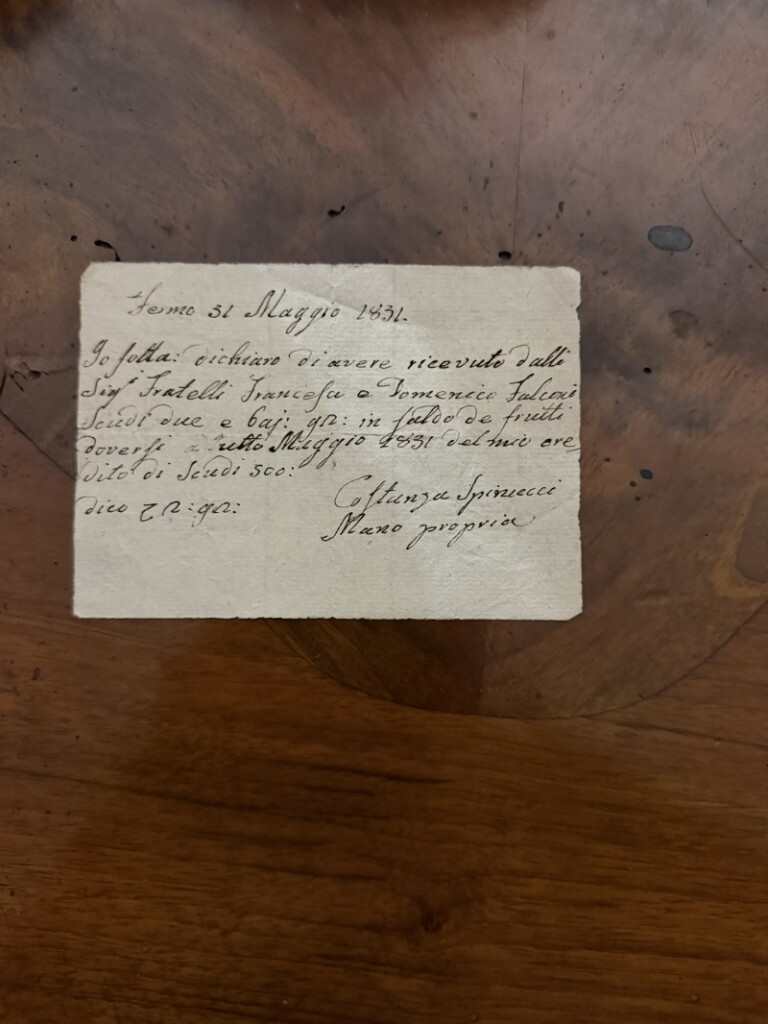 Fermo 31 Maggio 1831.
Io sotta: dichiaro di avere ricevuto dalli
Sigri Fratelli Francesco e Domenico Falconi
Scudi due e baj: 92: in saldo de frutti
doversi a tutto Maggio 1831 del mio cre=
dito di Scudi 500:
dico 2:92:
Costanza Spinucci
Mano propria